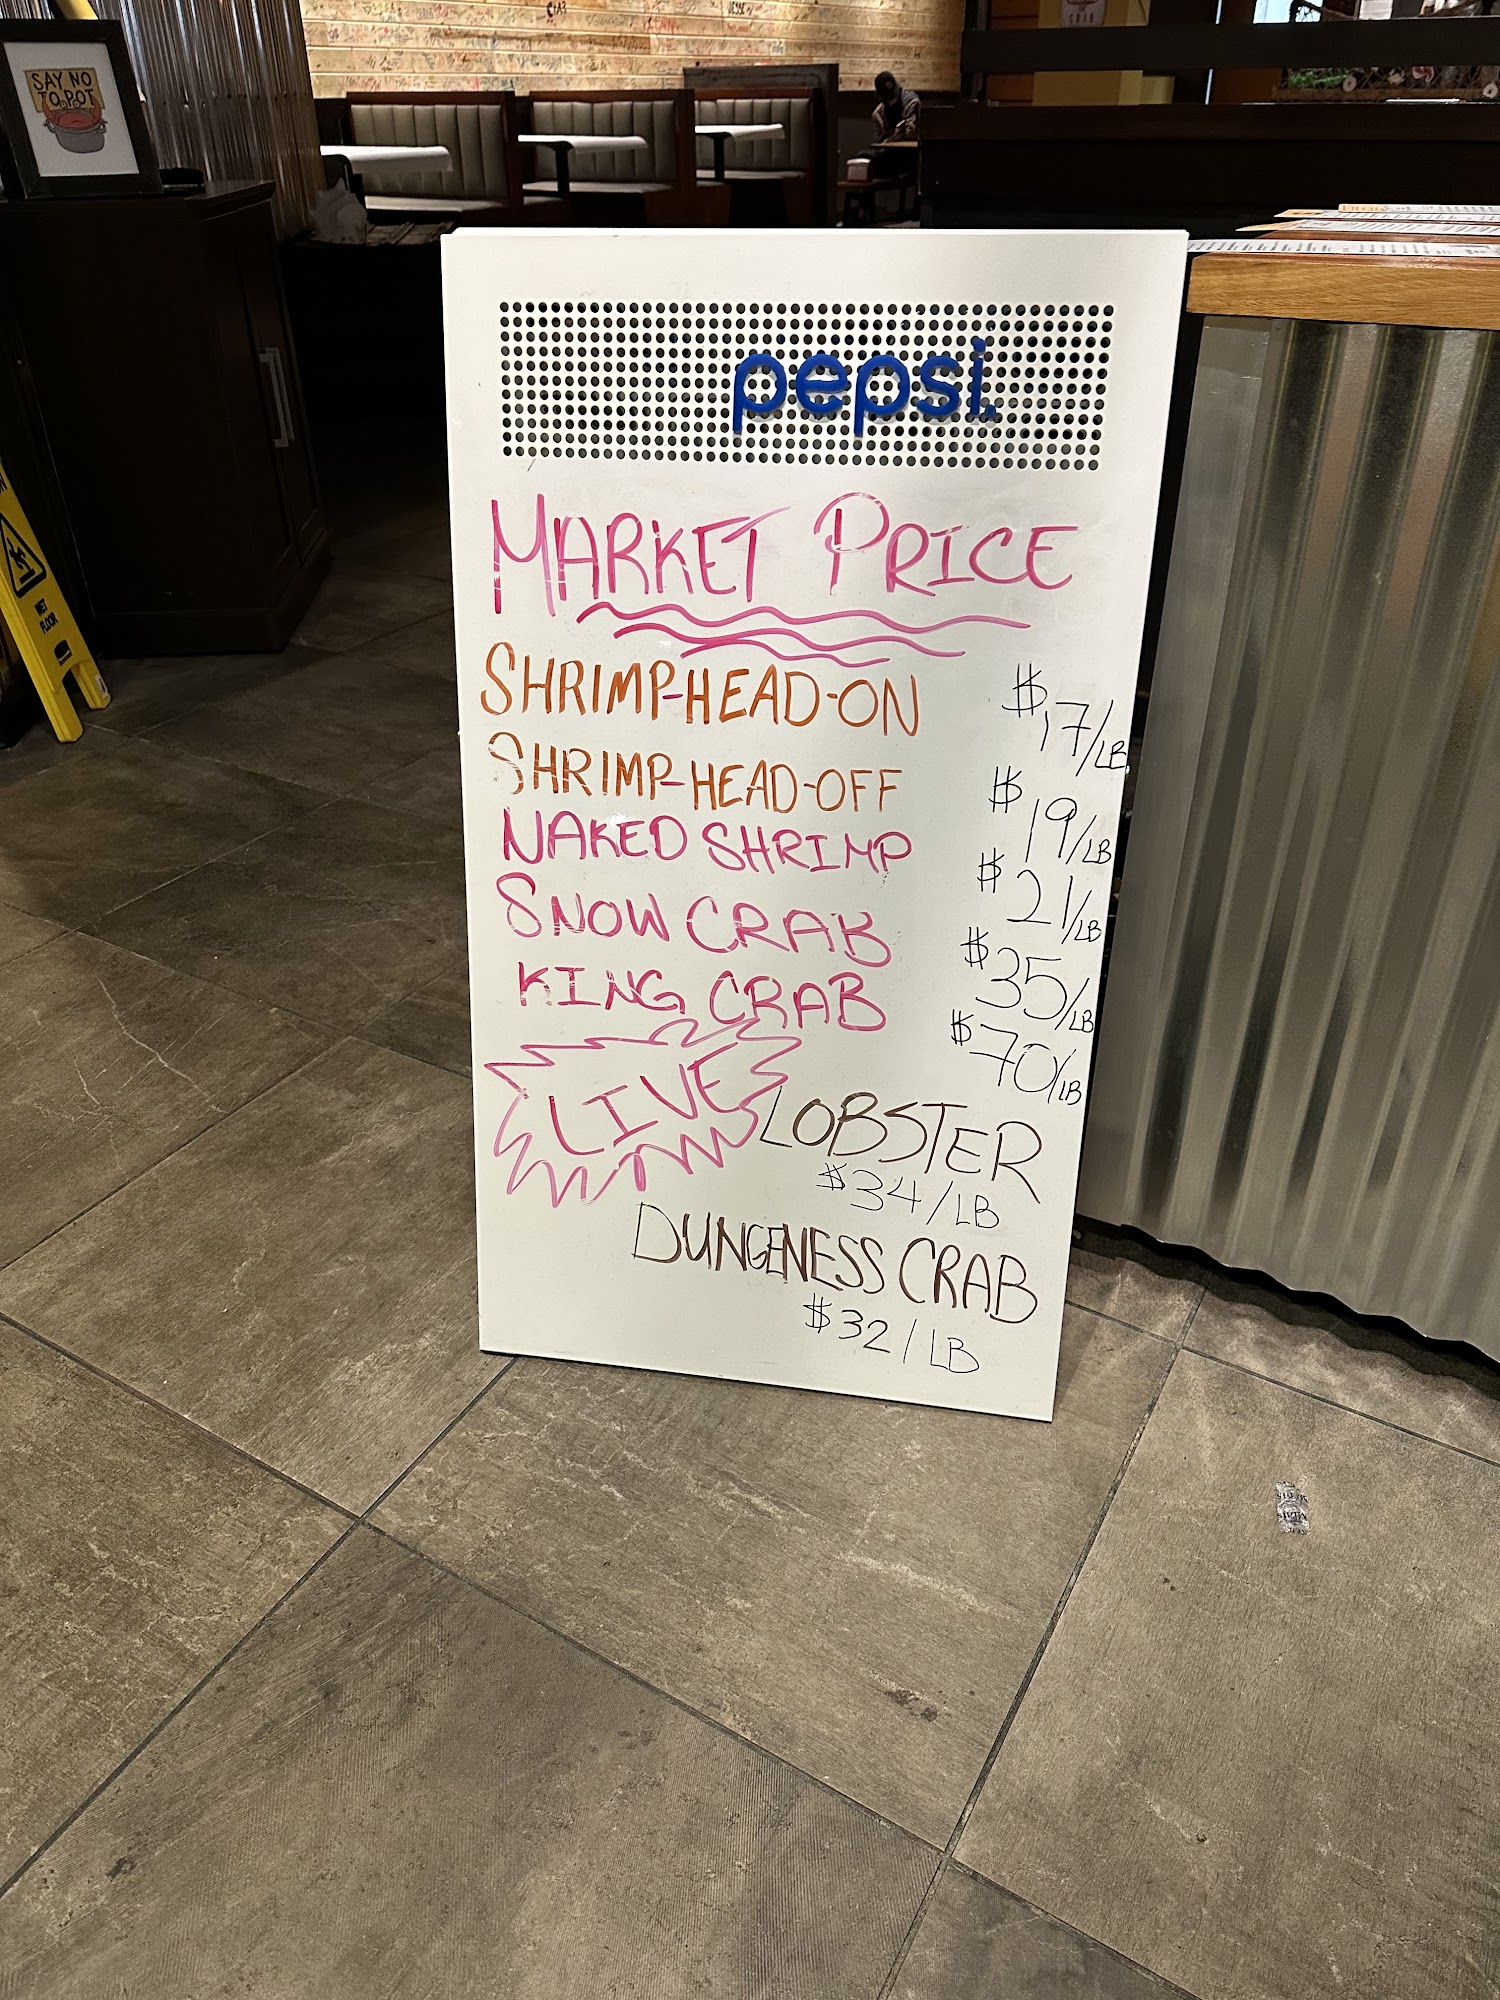 SAY NO
TO POT
pepsi.
MARKET PRICE
SHRIMP-HEAD-ON $17/LB
SHRIMP-HEAD-OFF $19/LB
NAKED SHRIMP $21/LB
SNOW CRAB $35/LB
KING CRAB $70/LB
LIVE LOBSTER
$34/LB
DUNGENESS CRAB
$32/LB
WET
FLOOR